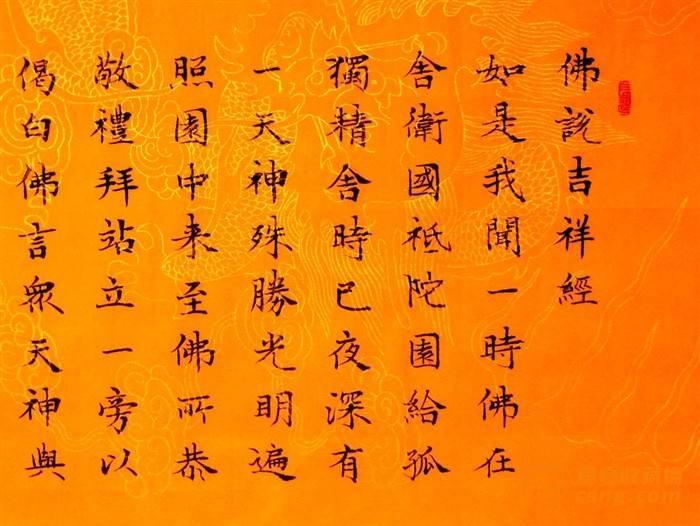 佛説吉祥經
如是我聞一時佛在
舍衛國祇陀園給孤
獨精舍時已夜深有
一天神殊勝光明遍
照園中来至佛所恭
敬禮拜站立一旁以
偈白佛言衆天神與